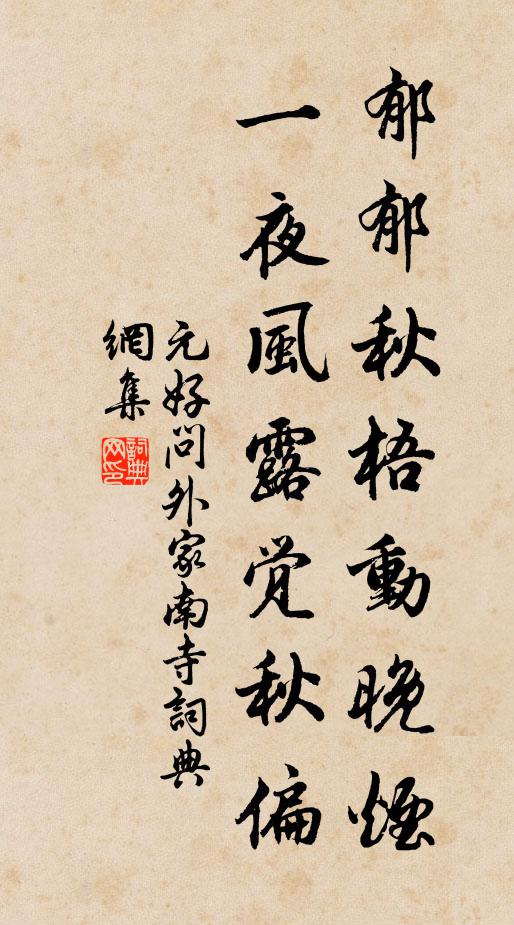 郁郁秋梧動晚煙
一夜風露覺秋偏
元好问外家南寺詞典
網集
詞典网印